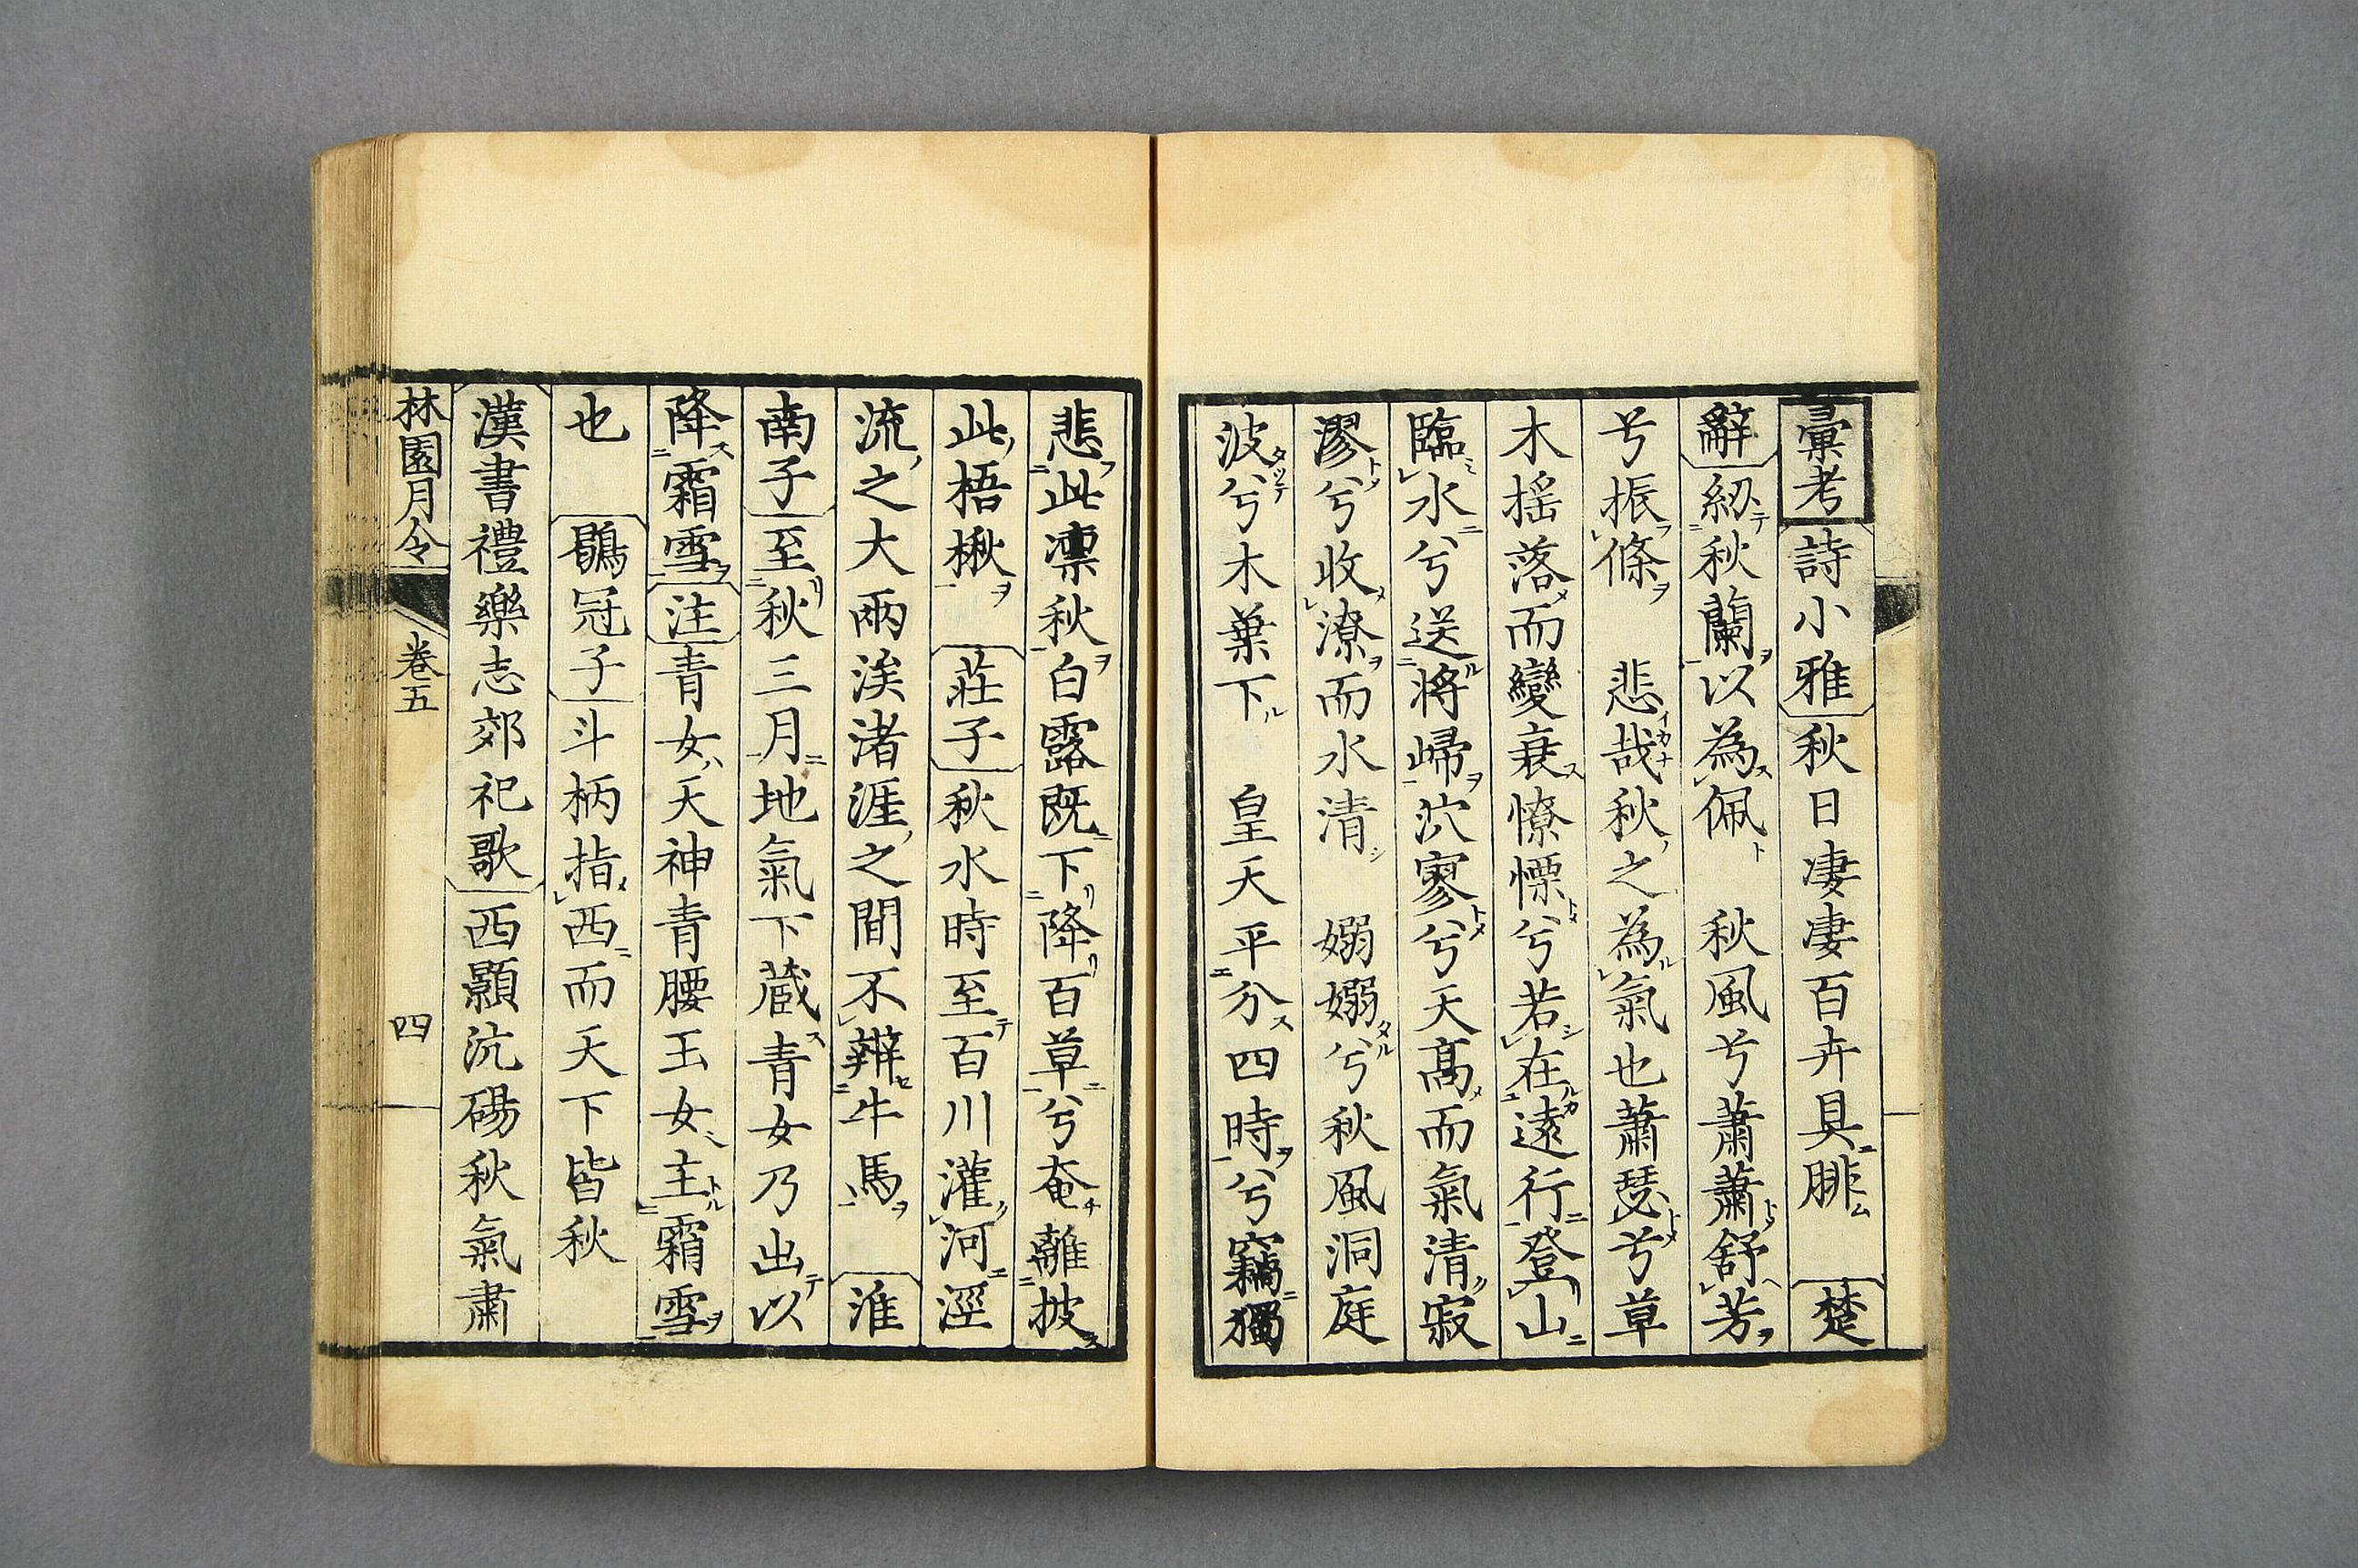 彙考詩小雅秋日淒淒百卉具腓　楚
辭紉秋蘭以為佩　秋風兮蕭蕭舒芳
兮振條　悲哉秋之為氣也蕭瑟兮草
木搖落而變衰憭慄兮若在遠行登山
臨水兮送將歸泬寥兮天高而氣清寂
漻兮收潦而水清　嫋嫋兮秋風洞庭
波兮木葉下　皇天平分四時兮竊獨
悲此凛秋白露既下降百草兮奄離披
此梧楸　莊子秋水時至百川灌河涇
流之大兩涘渚涯之間不辨牛馬　淮
南子至秋三月地氣下藏青女乃出以
降霜雪注青女天神青腰玉女主霜雪
也　鶡冠子斗柄指西而天下皆秋
漢書禮樂志郊祀歌西顥沆碭秋氣肅
林園月令　卷五　四